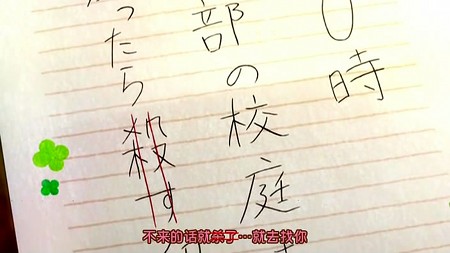 ０時
部の校庭
ったら殺す
不来的话就杀了…就去找你